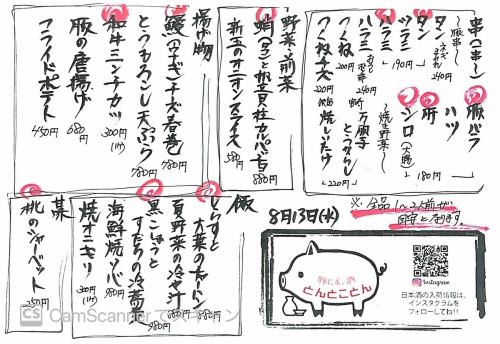 串(一串)
〜豚串〜
タン
ネギ
240円
タン
ツラミ
190円
ハラミ
ハラミ
240円
つくね
200円
つくねチーズ
220円
豚バラ
ハツ
肝
シロ(大腸)
180円
〜焼き野菜〜
万願寺とうがらし
焼しいたけ
220円
野菜・前菜
蛸(タコ)と帆立貝柱カルパッチョ
880円
新玉のオニオンスライス
580円
揚げ物
鰻(ウナギ)チーズ春巻
780円
とうもろこし天ぷら
780円
和牛ミンチカツ
300円(1ヶ)
豚の唐揚げ
680円
フライドポテト
450円
飯
とらふすと大葉のチャーハン
880円
夏野菜の冷や汁
880円
黒こしょうとすだちの冷蕎麦
980円
海鮮焼ソバ
980円
焼オニギリ
300円(1ヶ)
菓
桃のシャーベット
350円
※全品1〜2人前が
目安となります。
8月13日(水)
とんとことん
Instagram
日本酒の入荷情報は、
インスタグラムを
フォローしてね!!
CS CamScanner でスキャン